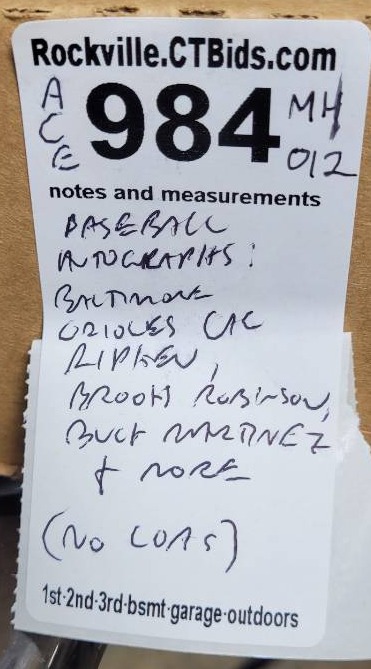 Rockville.CTBids.com
ACE 984 MH 012
notes and measurements
BASEBALL
AUTOGRAPHS:
BALTIMORE
ORIOLES CAL
RIPKEN,
BROOKS ROBINSON,
BUCK MARTINEZ
+ MORE
(NO COAS)
1st-2nd-3rd-bsmt-garage-outdoors